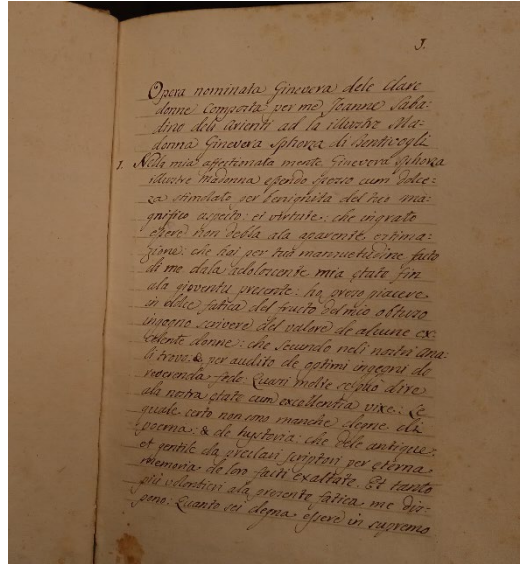 1.
Opera nominata Ginevera dele Clare
donne Composta per me Joanne Saba:
dino deli Arienti ad la illustre Ma:
donna Ginevera Spherza di Bentivogli
1. Nella mia affectionata mente Ginevera Spherza
illustre madonna essendo spesso cum dolce:
za stimolato per benignità del tuo ma:
gnifico aspecto: et virtute: che ingrato
essere non debba ala aparente extima:
zione: che hai per tua mansuetudine facto
di me dala adolescente mia etate fin
ala gioventù presente: ho preso piacere
in dolce fatica del fructo del mio obtuso
ingegno scrivere del valore de alcune ex:
cellente donne: che secundo neli nostri ana:
li trovo: & per audito de optimi ingegni de
reverenda fede: Quasi molte se può dire
ala nostra etate cum excellentia vixe: Le
quale certo non sono manche degne di
poema: & de hystoria: che dele antique,
et gentile da preclari scriptori per eterna
memoria de loro facti exaltate. Et tanto
più volontieri ala presente fatica me dis:
pono: Quanto sei degna essere in supremo